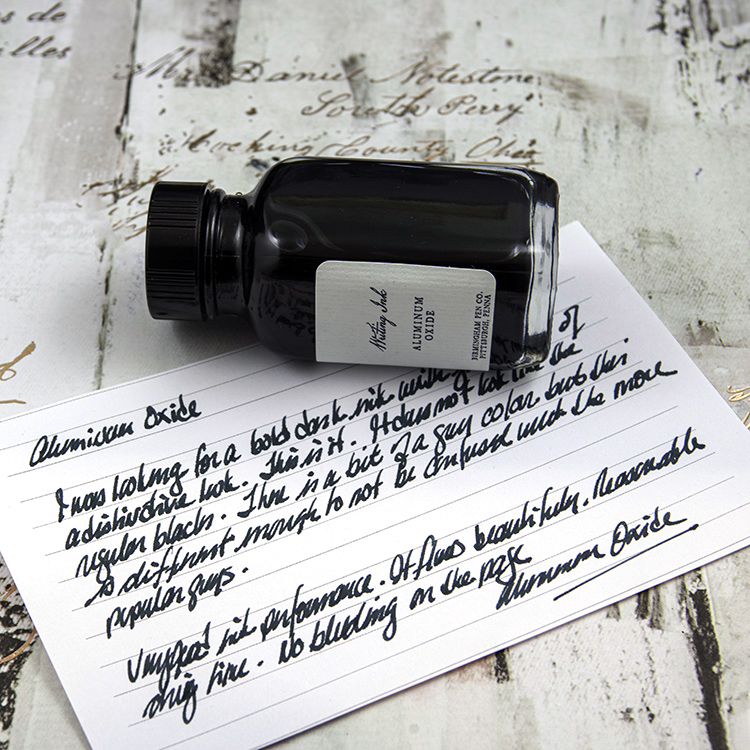 es de
illes
Mr. Daniel Notestone
South Perry
Hocking County Ohio
Writing Ink
ALUMINUM
OXIDE
BIRMINGHAM PEN CO.
PITTSBURGH, PENNA
Aluminum Oxide
I was looking for a bold dark ink with of
a distinctive look. This is it. It does not look like the
regular blacks. There is a bit of a grey color but this
is different enough to not be confused with the more
popular greys.
Very good ink performance. It flows beautifully. Reasonable
drying time. No bleeding on the page
Aluminum Oxide